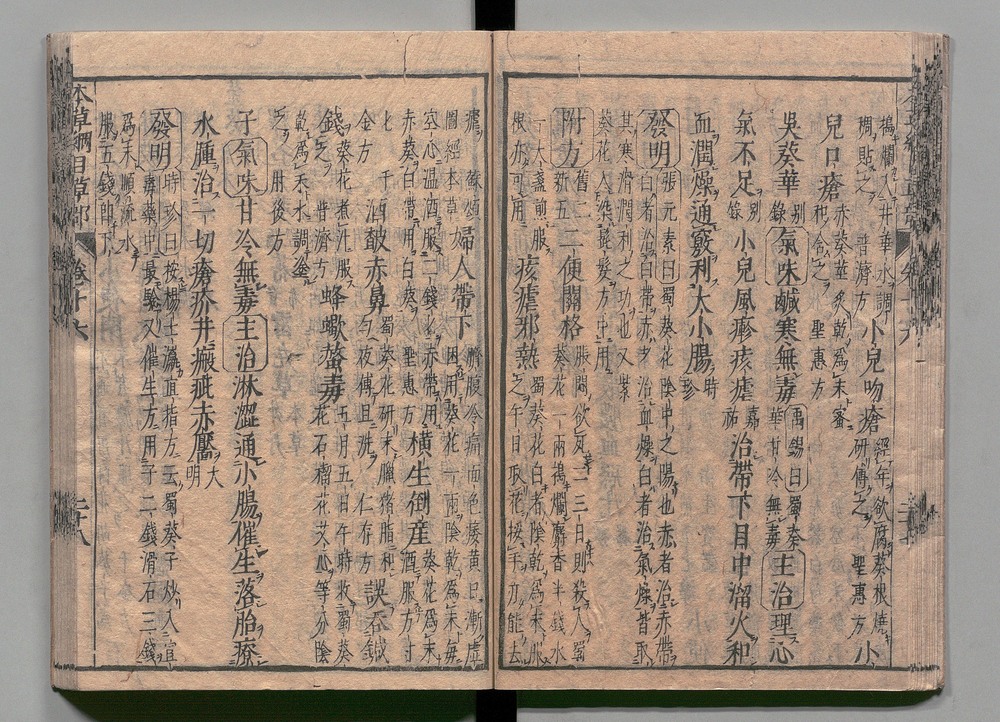 搗爛入井華水調
稠貼之
小兒吻瘡
經年欲腐葵根燒
研傅之聖惠方
小
兒口瘡
赤葵莖炙乾為末蜜
和含之 聖惠方
吳葵華
别錄
氣味鹹寒無毒
禹錫曰蜀葵
華甘冷無毒
主治理心
氣不足别錄小兒風疹痎瘧嘉祐治帶下目中溜火和
血潤燥通竅利大小腸時珍
發明
張元素曰蜀葵花陰中之陽也赤者治赤帶
白者治白帶赤者治血燥白者治氣燥皆取
其寒滑潤利之功也又紫
葵花入染髭髮方中用
附方
舊二
新五
二便關格
脹悶欲死二三日則殺人蜀
葵花一兩搗爛麝香半錢水
一大盞煎服
根亦可用
痎瘧邪熱
蜀葵花白者陰乾為末服
之午日取花挼手亦能去
瘧 蘇頌
圖經本草
婦人帶下
臍腹冷痛面色痿黃日漸虛
困用葵花一兩陰乾為末每
空心溫酒服二錢匕赤帶用
赤葵白帶用白葵 聖惠方
橫生倒産
葵花為末
酒服方寸
匕千
金方
酒皶赤鼻
蜀葵花研末臘猪脂和
勻夜傅旦洗 仁存方
誤吞鍼
錢
葵花煮汁服
之 普濟方
蜂蠍螫毒
五月五日午時收蜀葵
花石榴花艾心等分陰
乾為末水調塗
之 肘後方
子 氣味甘冷無毒主治淋澀通小腸催生落胎療
水腫治一切瘡疥并瘢疵赤靨大明
發明
時珍曰按楊士瀛直指方云蜀葵子炒入宣
毒藥中最驗又催生方用子二錢滑石三錢
為末順流水
服五錢即下
本草綱目草部 卷十六